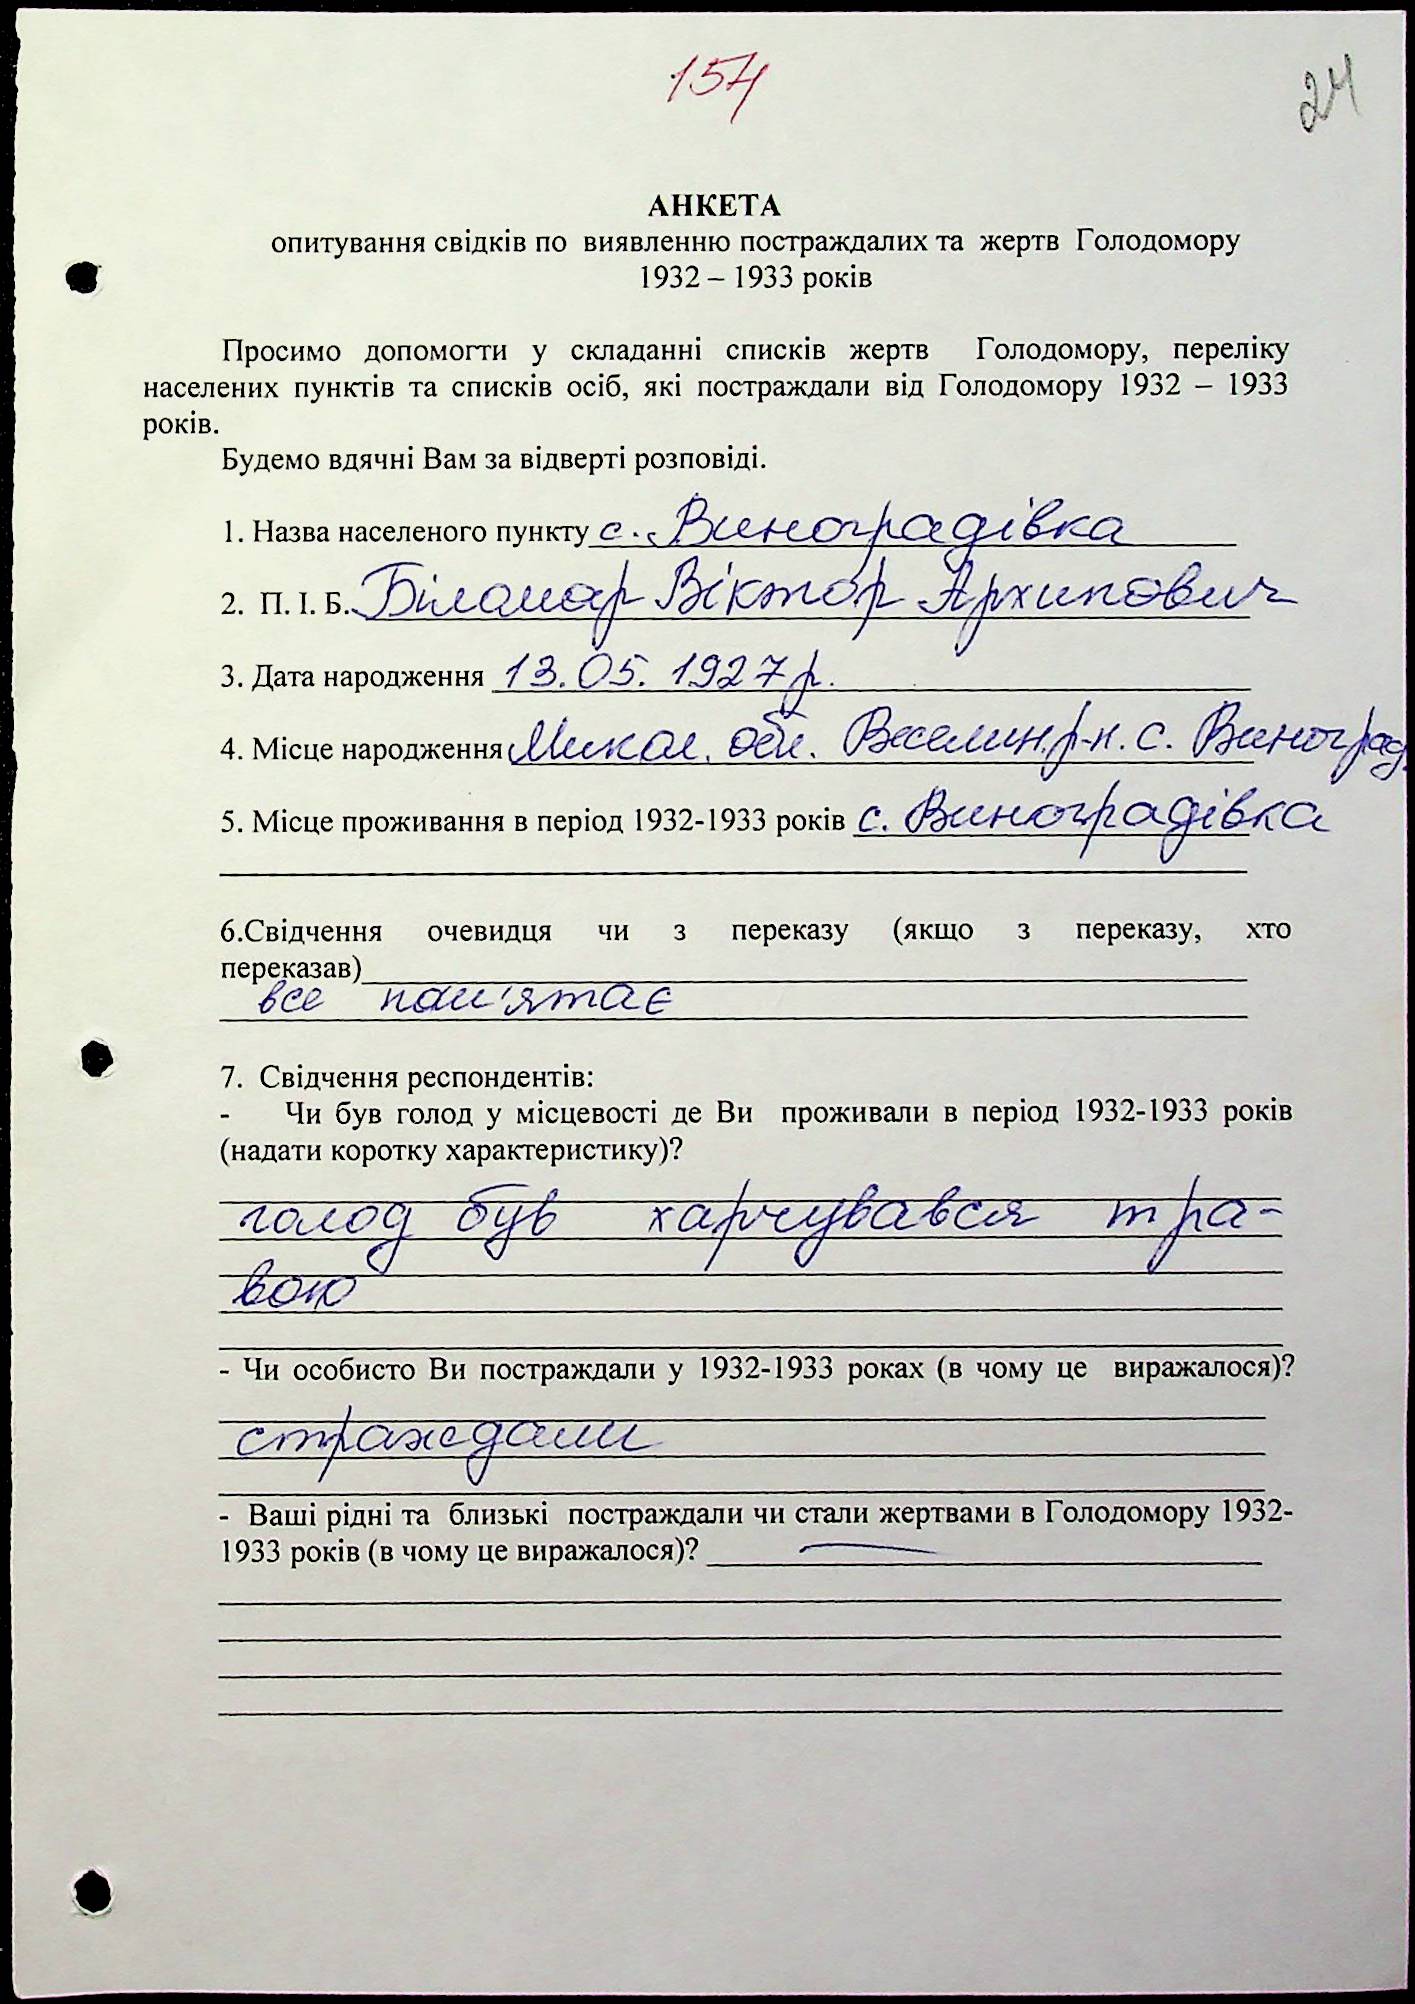 154
24
АНКЕТА
опитування свідків по виявленню постраждалих та жертв Голодомору
1932 – 1933 років
Просимо допомогти у складанні списків жертв Голодомору, переліку
населених пунктів та списків осіб, які постраждали від Голодомору 1932 – 1933
років.
Будемо вдячні Вам за відверті розповіді.
1. Назва населеного пункту с. Виноградівка
2. П. І. Б. Біломар Віктор Архипович
3. Дата народження 13.05.1927 р.
4. Місце народження Микол. обл. Веселин. р-н. с. Виноград.
5. Місце проживання в період 1932-1933 років с. Виноградівка
6.Свідчення очевидця чи з переказу (якщо з переказу, хто
переказав)
все пам'ятає
7. Свідчення респондентів:
- Чи був голод у місцевості де Ви проживали в період 1932-1933 років
(надати коротку характеристику)?
голод був харчувався тра-
вою
- Чи особисто Ви постраждали у 1932-1933 роках (в чому це виражалося)?
страждали
- Ваші рідні та близькі постраждали чи стали жертвами в Голодомору 1932-
1933 років (в чому це виражалося)? —